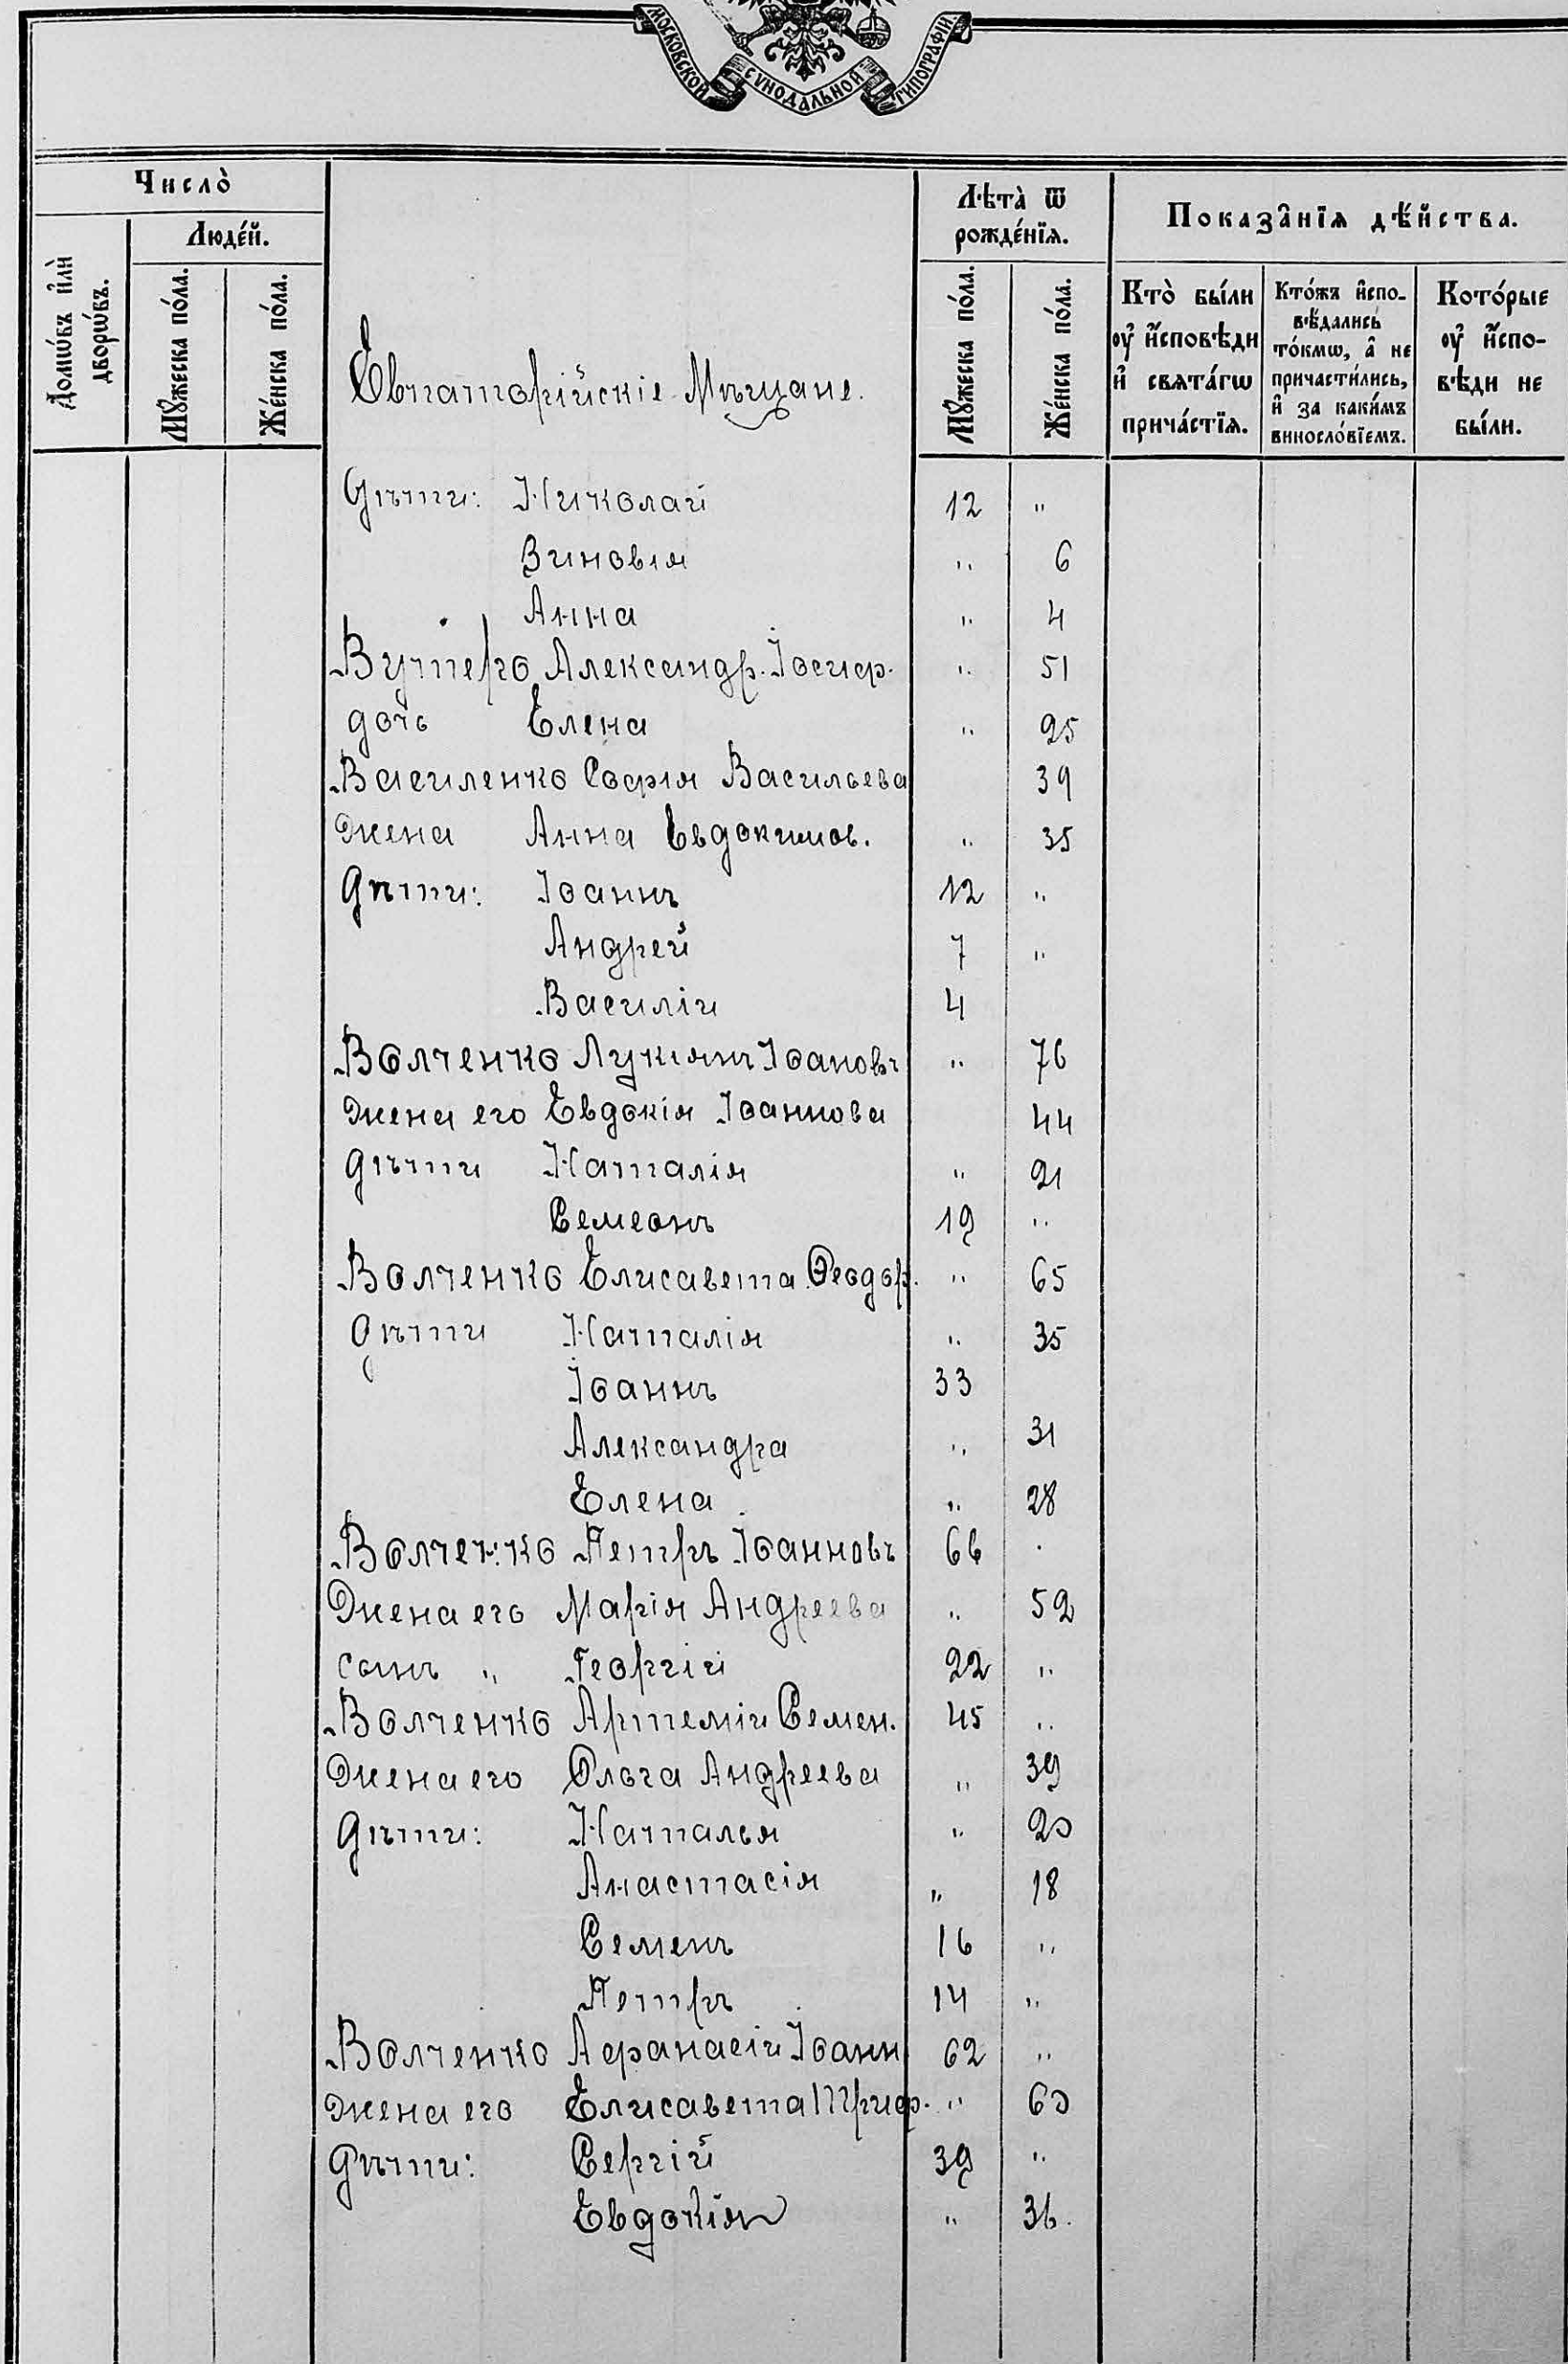 МОСКОВСКОЙ СѴНОДАЛЬНОЙ ТИПОГРАФІИ
Число̀
Домѡ́въ и҆лѝ дворѡ́въ.
Люде́й.
Мꙋ́жеска по́ла.
Же́нска по́ла.
Евпаторійскіе Мѣщане.
Лѣта̀ ѿ рожде́нїѧ.
Мꙋ́жеска по́ла.
Же́нска по́ла.
Показа̑нїѧ дѣ́йства.
Кто̀ бы́ли оу҆ и҆́сповѣди и҆ свѧта́гѡ прича́стїѧ.
Кто́жъ и҆сповѣ́дались то́кмѡ, а҆ не причасти́лись, и҆ за каки́мъ виносло́вїемъ.
Кото́рые оу҆ и҆́сповѣди не бы́ли.
Дѣти: Николай 12 "
Зиновія " 6
Анна " 4
Александр. Іосиф. " 51
дочь Елена " 25
Василенко Софія Васильева 39
Жена Анна Евдокимов. " 35
Дѣти: Іоаннъ 12 "
Андрей 7 "
Василій 4
Волченко Лукіянъ Іоановъ " 76
Жена его Евдокія Іоаннова 44
Дѣти Наталія " 21
Семеонъ 19 "
Волченко Елисавета Феодор. " 65
Дѣти Наталія " 35
Іоаннъ 33
Александра " 31
Елена " 28
Волченко Петръ Іоанновъ 66 .
Жена его Марія Андреева " 52
сынъ " Георгій 22 "
Волченко Артемій Семен. 45 "
Жена его Ольга Андреева " 39
Дѣти: Наталья " 20
Анастасія " 18
Семенъ 16 "
Петръ 14 "
Волченко Афанасій Іоанн 62 "
Жена его Елисавета Триф. " 60
Дѣти: Сергій 39 "
Евдокія " 36.